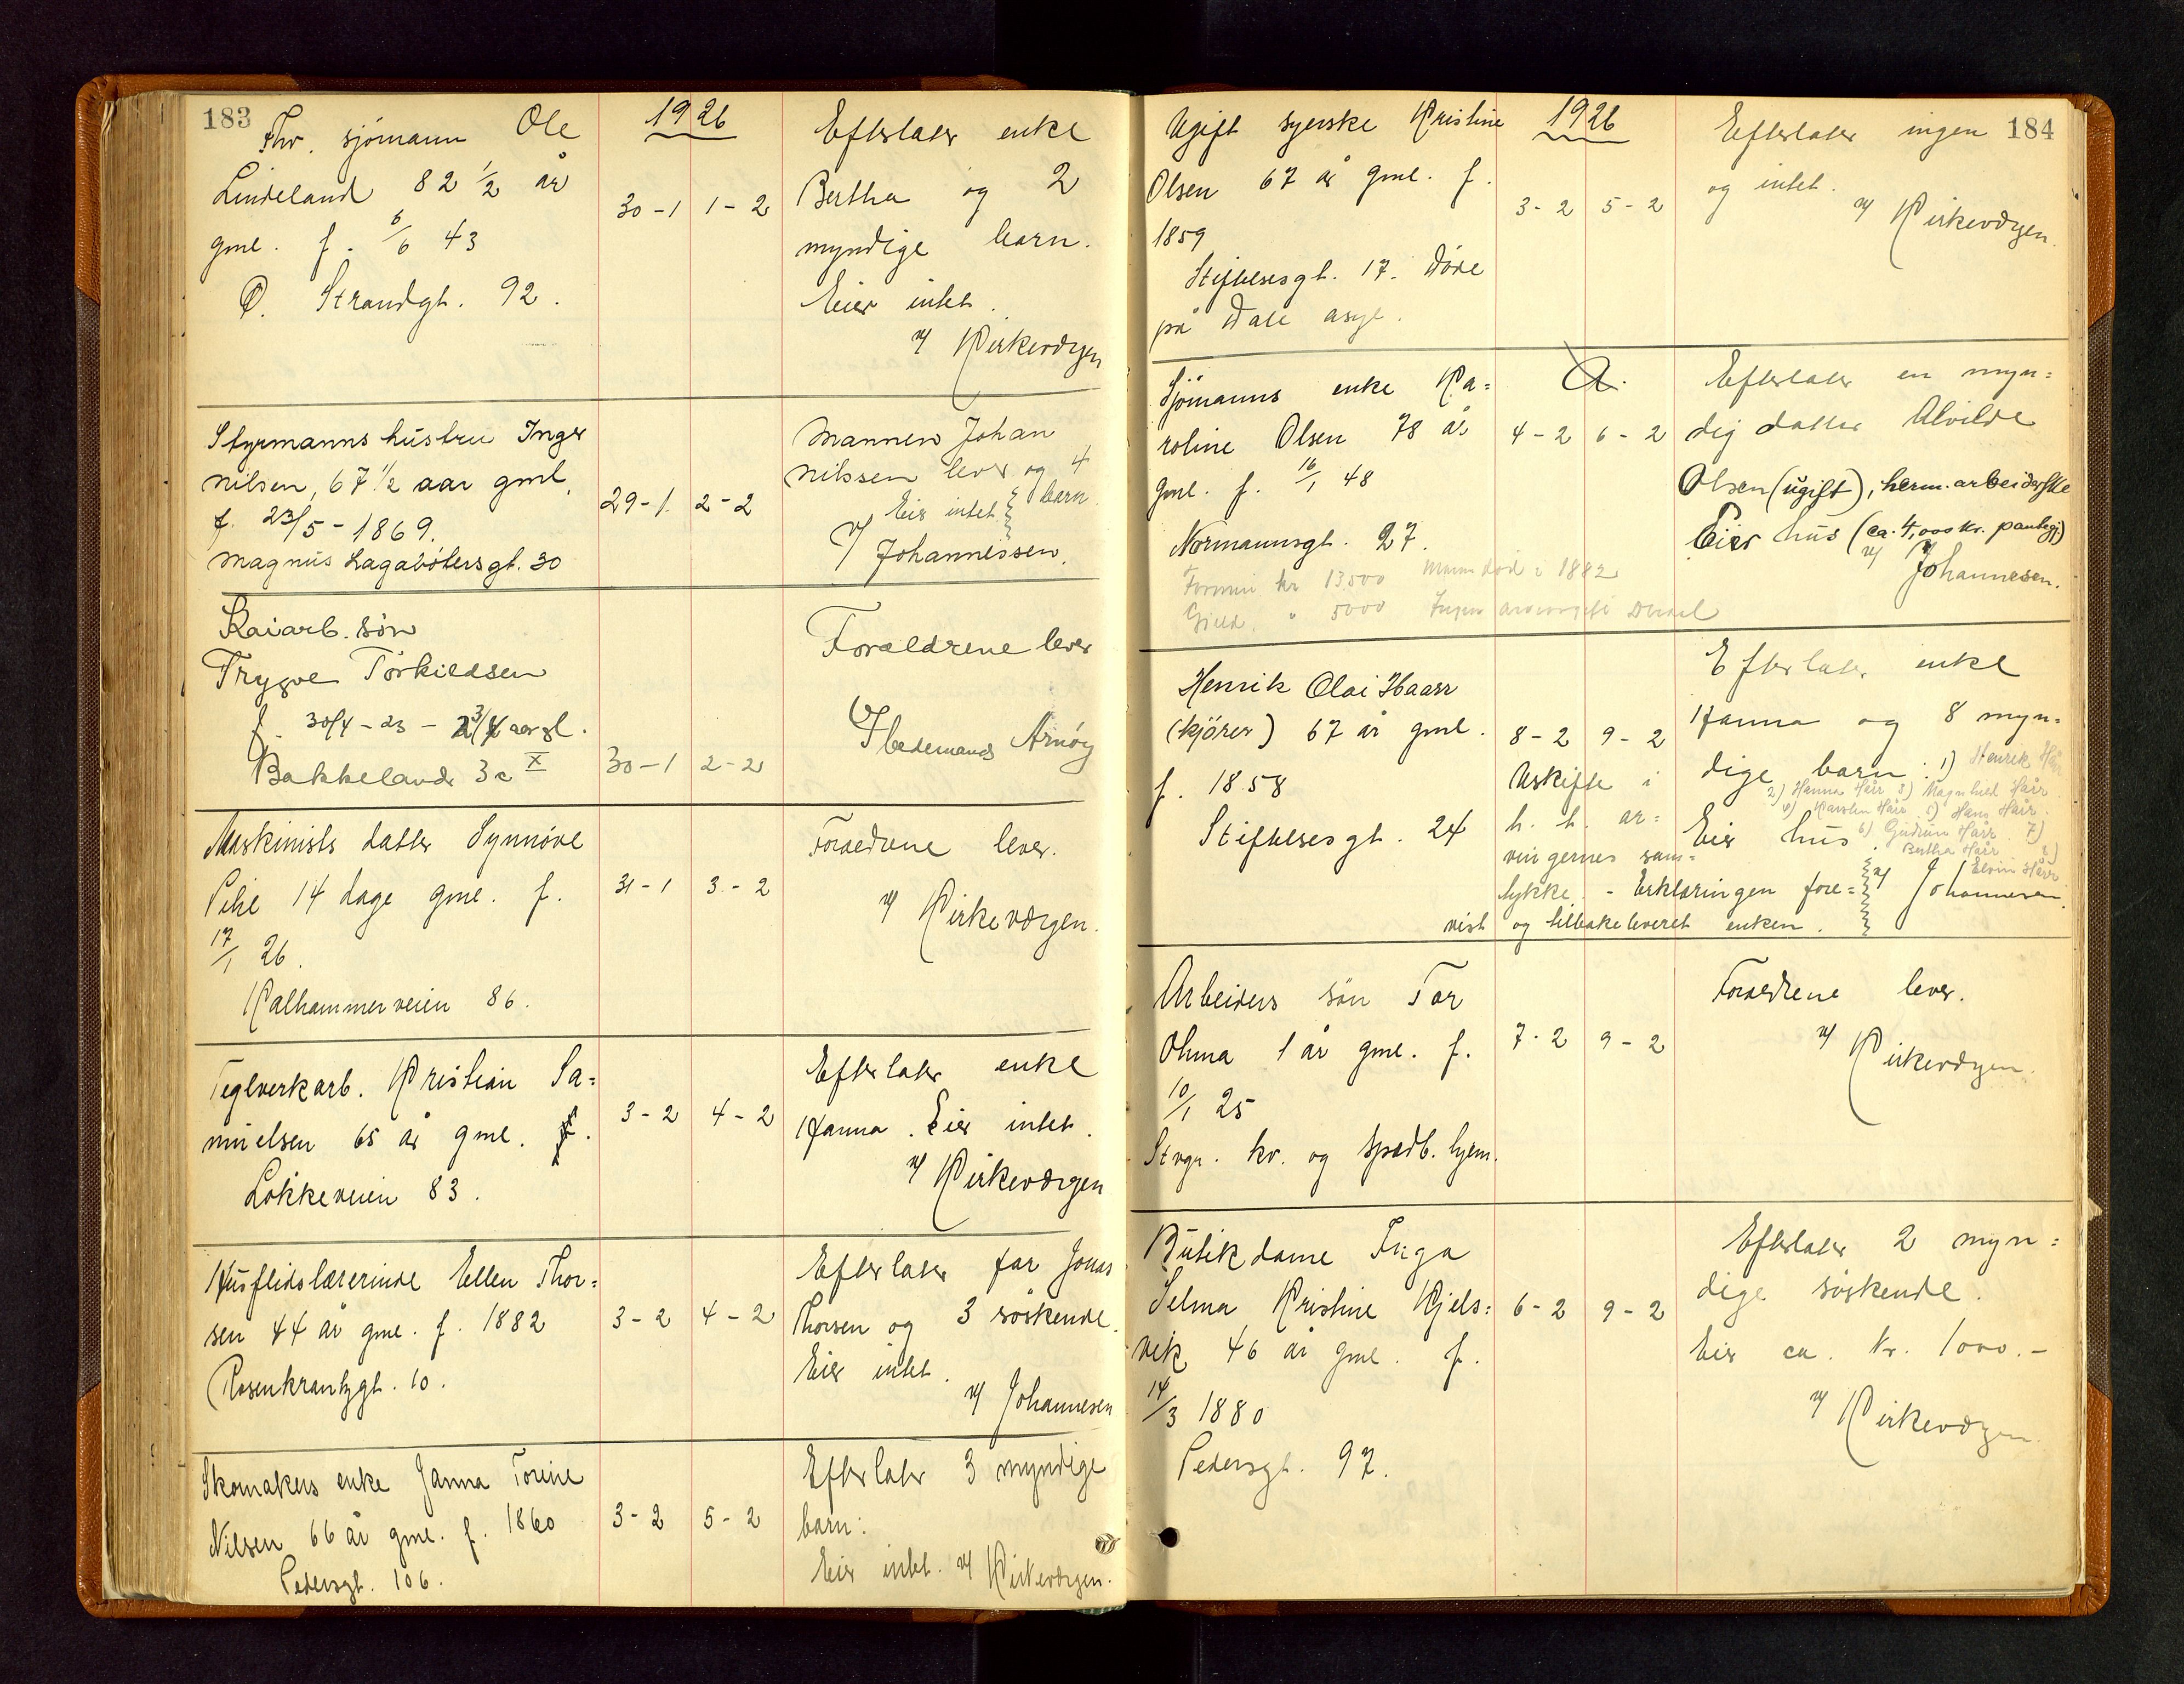 183
1926
Fhv. sjömann Ole
Lindeland 82 1/2 år
gml. f. 6/6 43
Ö. Strandgt. 92.
30-1 1-2
Efterlater enke
Bertha og 2
myndige barn.
Eier intet.
v/ Kirkevergen
Styrmanns hustru Inger
Nilsen, 67 1/2 aar gml.
f. 23/5 - 1869.
Magnus Lagabötersgt. 30
29-1 2-2
Mannen Johan
Nilssen lever og 4
barn
Eier intet.
v/ Johannessen.
Kaiarb. sön
Trygve Torkildsen
f. 30/4 - 23 - 2 3/4 aar gl.
Bakkelands 3c X
30-1 2-2
Foreldrene lever
Arnöy
Maskinists datter Synnöve
14 dage gml. f.
17/1 26.
Kalhammerveien 86.
31-1 3-2
Foreldrene lever.
v/ Kirkevergen.
Teglverkarb. Kristian Sa=
muelsen 65 år gml. f.
Lökkeveien 83.
3-2 4-2
Efterlater enke
Hanna. Eier intet.
v/ Kirkevergen
Husflidslærerinde Ellen Thor=
sen 44 år gml. f. 1882
Rosenkrantzgt. 10.
3-2 4-2
Efterlater far Jonas
Thorsen og 3 söskende.
Eier intet.
v/ Johannesen
Skomakers enke Janna Torine
Nilsen 66 år gml. f. 1860
Pedersgt. 106.
3-2 5-2
Efterlater 3 myndige
barn:
Eier intet. v/ Kirkevergen.
184
1926
Ugift syerske Kristine
Olsen 67 år gml. f.
1859
Stiftelsesgt. 17. Döde
på Dale asyl.
3-2 5-2
Efterlater ingen
og intet.
v/ Kirkevergen.
Sjömanns enke Ka=
roline Olsen 78 år
gml. f. 16/1 48
Normannsgt. 27.
Formue kr 13500 Mann död i 1882
Gjeld " 5000 Ingen
a.
4-2 6-2
Efterlater en myn=
dig datter Alvilde
Olsen (ugift), herm. arbeiderske
Eier hus (ca. 4,000 kr. pantegj)
v/ Johannesen.
Henrik Olai Haarr
(kjörer) 67 år gml.
f. 1858
Stiftelsesgt. 24
8-2 9-2
Uskifte i
h. t. ar=
vingernes sam=
tykke. - Erkleringen fore=
vist og tilbakeleveret enken.
Efterlater enke
Hanna og 8 myn=
dige barn: 1) Henrik Hårr
2) Hanna Hårr 3) Magnhild Hårr
4) Karsten Hårr 5) Hans Hårr
6) Gudrun Hårr 7)
Bertha Hårr 8)
Elvin Hårr
Eier hus.
v/ Johannesen.
Arbeiders sön Tor
Ohma 1 år gml. f.
10/1 25
Stvgr. kv. og spedb. hjem.
7-2 9-2
Foreldrene lever.
v/ Kirkevergen.
Butikdame Inga
Selma Kristine Kjels=
vik 46 år gml. f.
14/3 1880
Pedersgt. 97.
6-2 9-2
Efterlater 2 myn=
dige söskende.
Eier ca. kr. 1000.-
v/ Kirkevergen